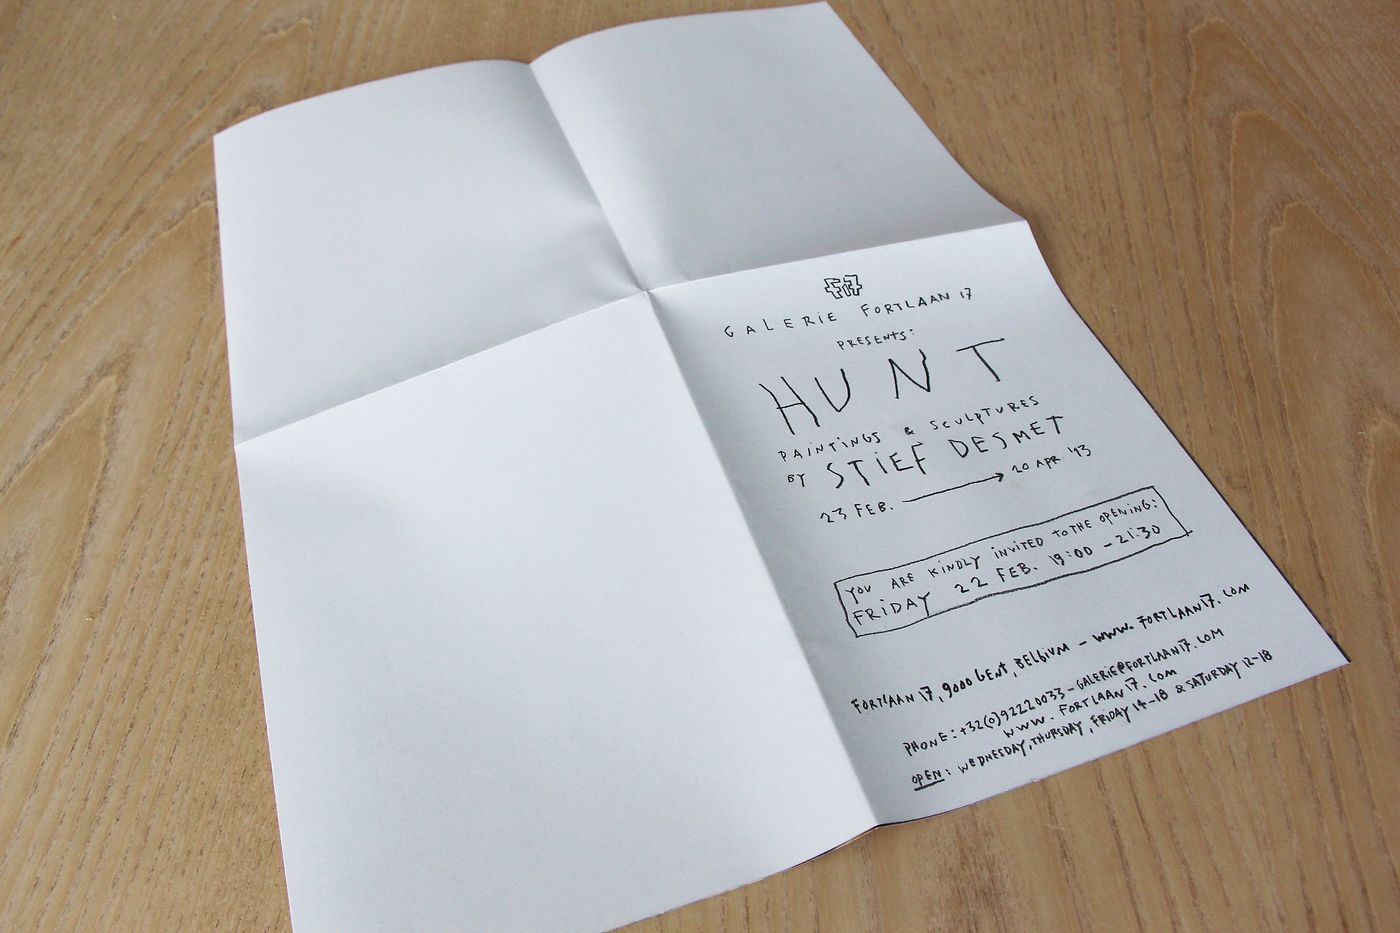 Fr17
GALERiE FORTLAAN 17
PRESENTS:
HUNT
PAiNTiNGS & SCULPTURES
BY STiEF DESMET
23 FEB. → 20 APR '13
YOU ARE KiNDLY iNViTED TO THE OPENiNG:
FRiDAY 22 FEB. 19:00 - 21:30
FORTLAAN 17, 9000 GENT, BELGIUM - WWW. FORTLAAN17. COM
PHONE: +32(0)92220033 - GALERiE@FORTLAAN17. COM
WWW. FORTLAAN17. COM
OPEN: WEDNESDAY, THURSDAY, FRIDAY 14-18 & SATURDAY 12-18